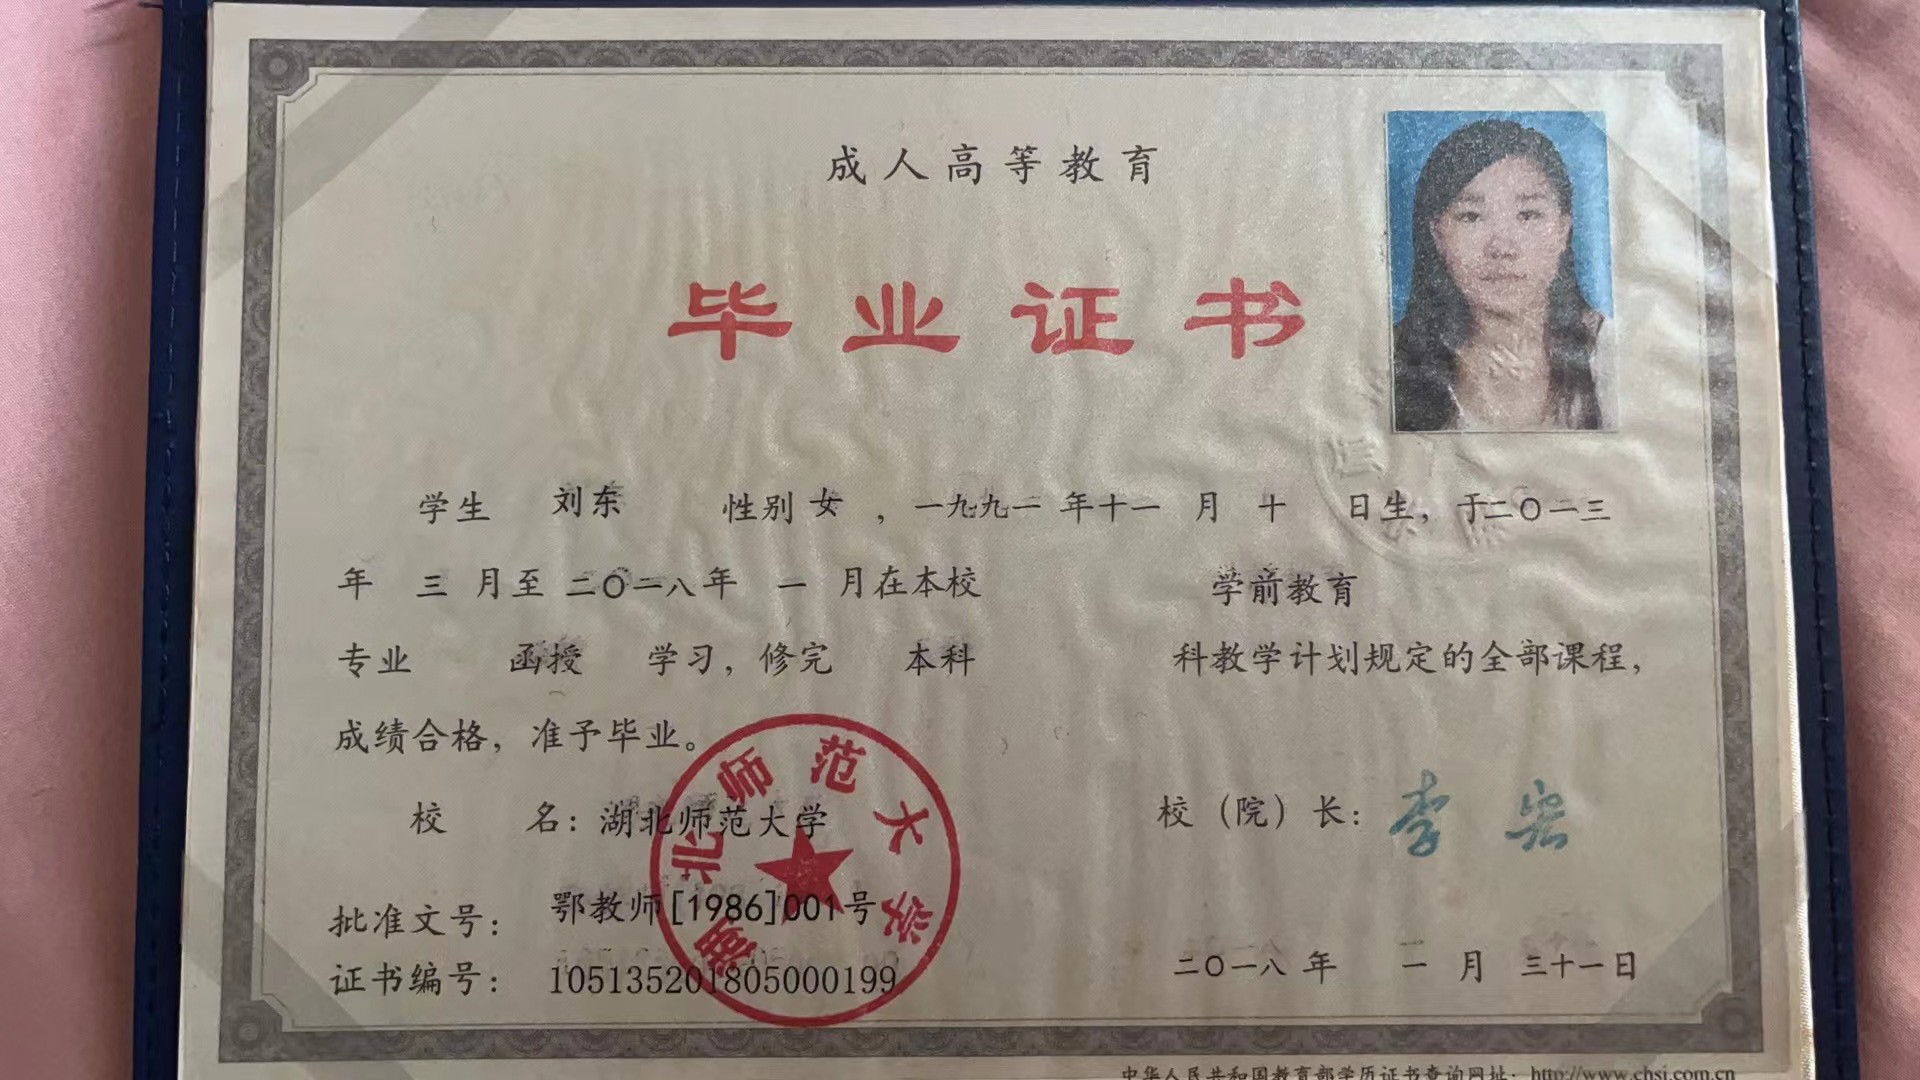 成人高等教育
毕业证书
学生 刘东 性别 女 ，一九九一 年十一 月 十 日生，于二〇一三
年 三 月至 二〇一八年 一 月在本校 学前教育
专业 函授 学习，修完 本科 科教学计划规定的全部课程，
成绩合格，准予毕业。
校 名：湖北师范大学 校（院）长：李宏
批准文号：鄂教师[1986]001号
证书编号：105135201805000199
二〇一八 年 一 月 三十一日
湖北师范大学
中华人民共和国教育部学历证书查询网址：http://www.chsi.com.cn